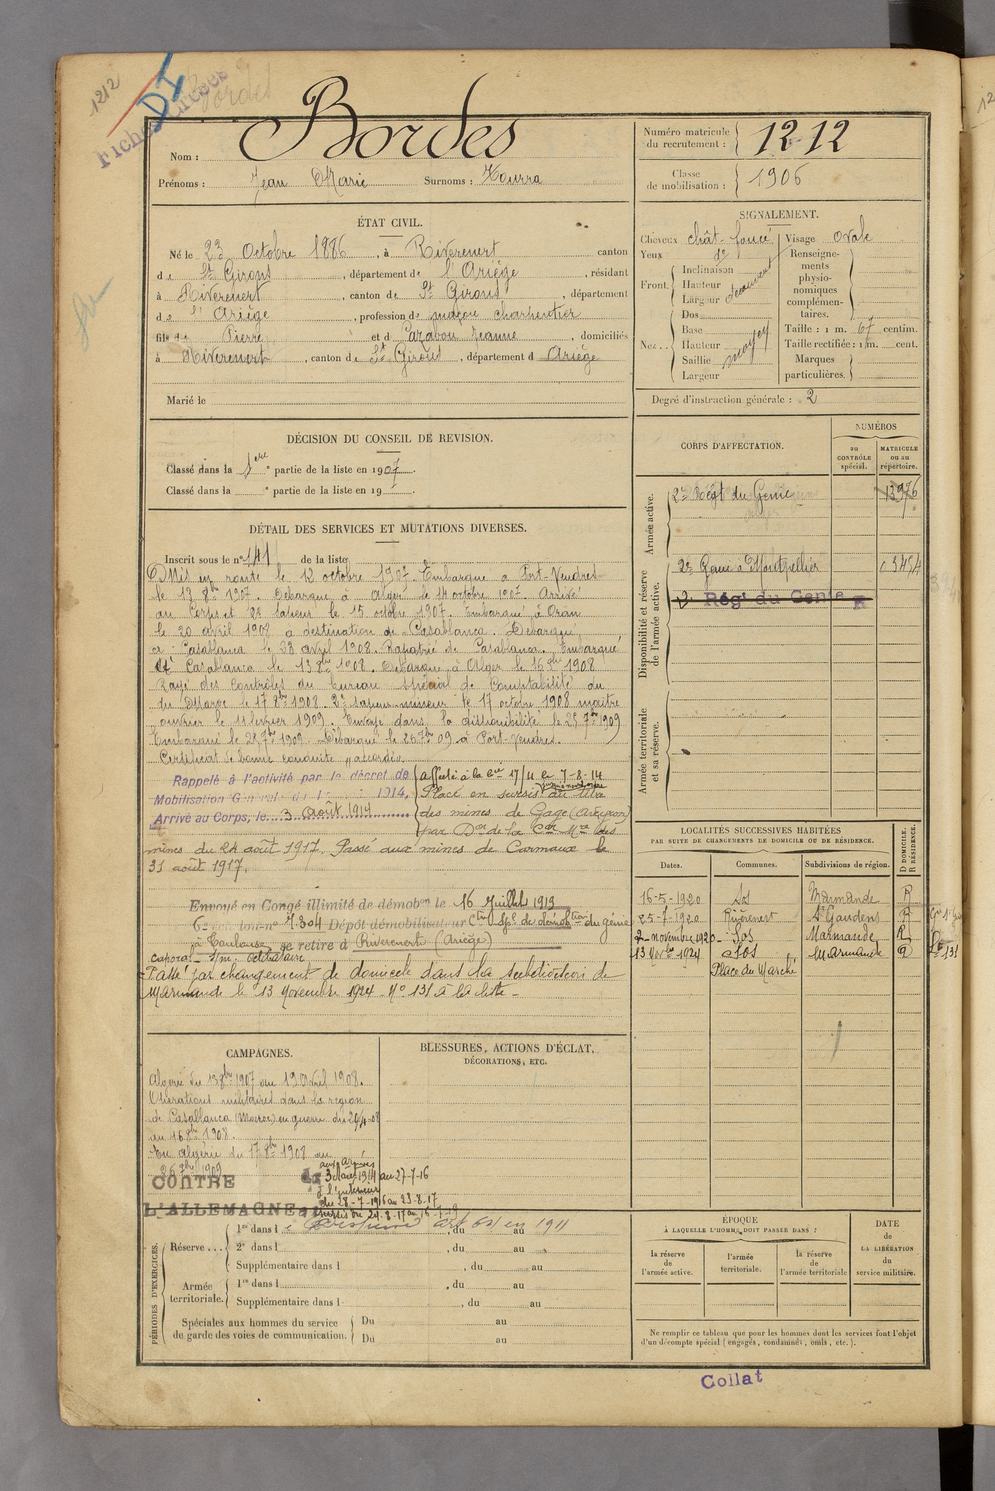 1212
DI
Fiches
Bordes
Nom : Bordes
Prénoms : Jean Marie Surnoms : Hourra
Numéro matricule du recrutement : 1212
Classe de mobilisation : 1906
ÉTAT CIVIL.
Né le 23 Octobre 1886, à Riverenert canton
de St Girons, département de l'Ariège, résidant
à Riverenert, canton de St Girons, département
de l'Ariège, profession de maçon charpentier
fils de Pierre et d Cazabou Jeanne domiciliés
à Riverenert, canton de St Girons, département d Ariège
Marié le
SIGNALEMENT.
Cheveux chât. foncé Visage ovale
Yeux do
Front. Inclinaison
Hauteur
Largeur
Nez... Dos
Base
Hauteur
Saillie moyen
Largeur
Renseignements physionomiques complémentaires.
Taille : 1 m. 67 centim.
Taille rectifiée : 1 m. cent.
Marques particulières.
Degré d'instruction générale : 2
DÉCISION DU CONSEIL DE REVISION.
Classé dans la 1ere partie de la liste en 1907.
Classé dans la e partie de la liste en 19 .
DÉTAIL DES SERVICES ET MUTATIONS DIVERSES.
Inscrit sous le n° 141 de la liste
Mis en route le 12 octobre 1907. Embarqué à Port-Vendres
le 13 8bre 1907. Débarqué à Alger le 14 octobre 1907. Arrivé
au Corps et 2e sapeur le 15 octobre 1907. Embarqué à Oran
le 20 avril 1908 à destination de Casablanca. Débarqué
à Casablanca le 23 avril 1908. Rapatrié de Casablanca. Embarqué
à Casablanca le 13 8bre 1908. Débarqué à Alger le 16 8bre 1908
Rayé des contrôles du bureau spécial de Comptabilité du
du Maroc le 17 8bre 1908. 2e sapeur mineur le 17 octobre 1908 maître
ouvrier le 11 février 1909. Envoyé dans la disponibilité le 25 7bre 1909
Embarqué le 25 7bre 1909 Débarqué le 26 7bre 09 à Port-Vendres.
Certificat de bonne conduite accordé.
Rappelé à l'activité par le décret de
Mobilisation Générale du 1 1914.
Arrivé au Corps, le 3 Août 1914
affecté à la Cie 17/4 le 7-8-14
Placé en sursis au titre
des mines de Gages (Aveyron)
par Don de la Con Mre des
mines du 24 août 1917. Passé aux mines de Carmaux le
31 août 1917.
Envoyé en Congé illimité de démobon le 16 Juillet 1919
Dépôt démobilisateur
à Toulouse, se retire à Riverenert (Ariège)
Passé par changement de domicile dans la subdivision de
Marmande le 13 Novembre 1924 No 131 à la liste
CORPS D'AFFECTATION.
NUMÉROS
au CONTRÔLE spécial.
MATRICULE ou au répertoire.
Armée active.
2e Régt du Génie 13976
Disponibilité et réserve de l'armée active.
2e Génie à Montpellier 03454
2e Régt du Génie
Armée territoriale et sa réserve.
LOCALITÉS SUCCESSIVES HABITÉES
PAR SUITE DE CHANGEMENTS DE DOMICILE OU DE RÉSIDENCE.
Dates. Communes. Subdivisions de région. D DOMICILE. R RÉSIDENCE.
16-5-1920 Sos Marmande R
25-7-1920 Riverenert St Gaudens R
2 novembre 1920 Sos Marmande R
13 Novbre 1924 Sos Marmande D
Place du Marché
CAMPAGNES.
Algérie du 13 8bre 1907 au 19 avril 1908.
Opérations militaires dans la région
de Casablanca (Maroc) en guerre du 20/4-08
au 16 8bre 1908.
En Algérie du 17 8bre 1908 au
26 7bre 1909
CONTRE
L'ALLEMAGNE
aux armées
au 27-7-16
à l'intérieur
du 28-7-1916 au 23-8-17
BLESSURES, ACTIONS D'ÉCLAT,
DÉCORATIONS, ETC.
PÉRIODES D'EXERCICES.
Réserve... 1re dans l , du au
2e dans l , du au
Supplémentaire dans l , du au
Armée territoriale. 1re dans l , du au
Supplémentaire dans l , du au
Spéciales aux hommes du service de garde des voies de communication. Du au
Du au
ÉPOQUE
À LAQUELLE L'HOMME DOIT PASSER DANS :
la réserve de l'armée active.
l'armée territoriale.
la réserve de l'armée territoriale
DATE de LA LIBÉRATION du service militaire.
Ne remplir ce tableau que pour les hommes dont les services font l'objet
d'un décompte spécial (engagés, condamnés, omis, etc.).
Collat